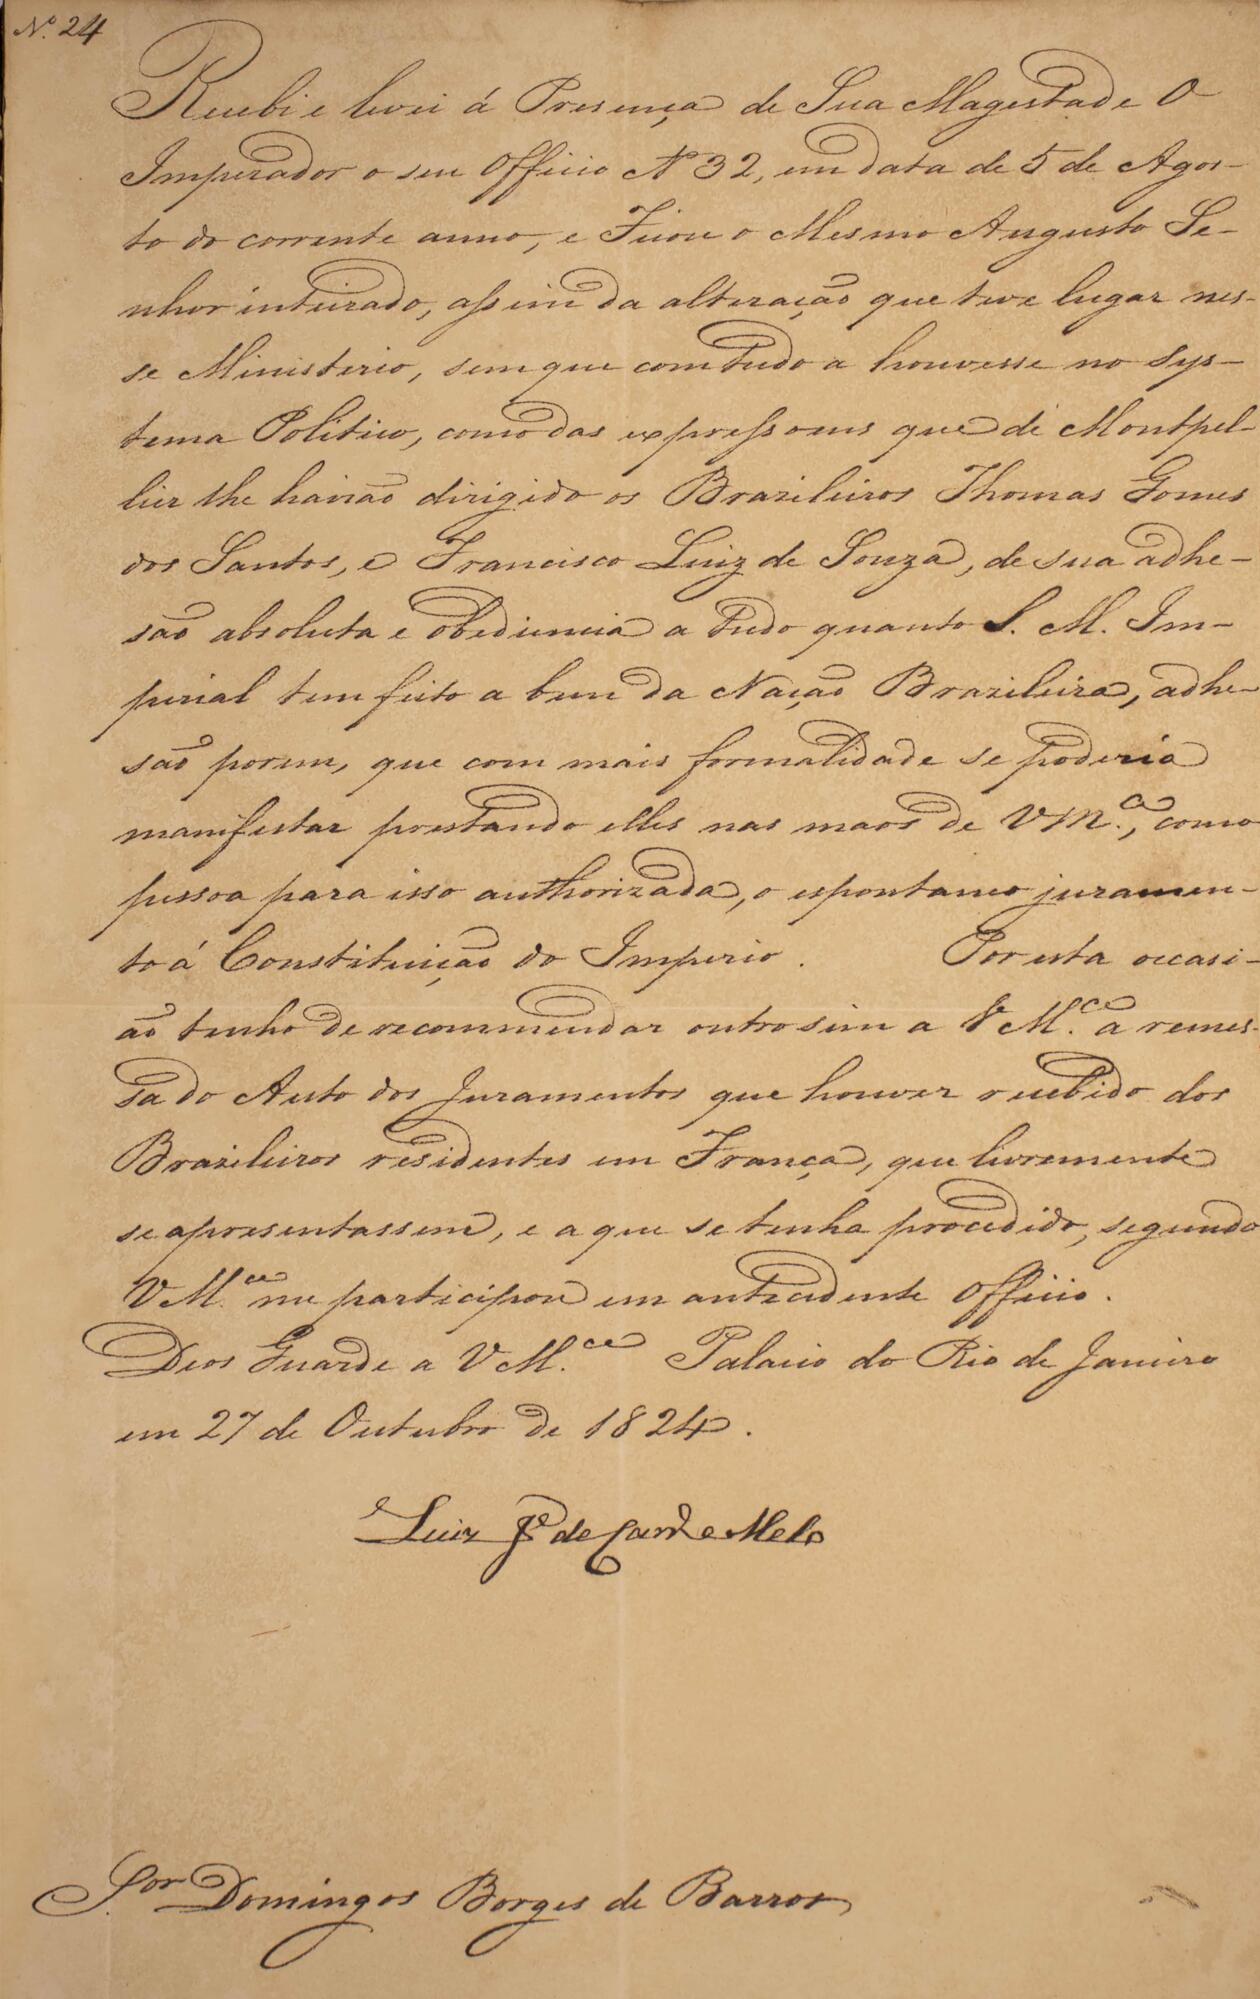 Nº 24
Recebi e levei á Presença de Sua Magestade O
Imperador o seu Officio Nº 32, em data de 5 de Agos-
to do corrente anno, e Ficou o Mesmo Augusto Se-
nhor inteirado, assim da alteração que teve lugar nes-
se Ministerio, sem que com tudo a houvesse no Sys-
tema Politico, como das expressoens que de Montpel-
lier lhe havião dirigido os Brazileiros Thomas Gomes
dos Santos, e Francisco Luiz de Souza, de sua adhe-
são absoluta e obediencia a tudo quanto S. M. Im-
perial tem feito a bem da Nação Brazileira, adhe-
são porem, que com mais formalidade se poderia
manifestar prestando elles nas maos de VM.ce, como
pessoa para isso authorizada, o espontaneo juramen-
to á Constituição do Imperio. Por esta occasi-
ão tenho de recommendar outro sim a VM.ce a remes-
sa do Auto dos Juramentos que houver recebido dos
Brazileiros residentes em França, que livremente
se apresentassem, e a que se tenha procedido, segundo
VM.ce me participou em antecedente Officio.
Deos Guarde a VM.ce Palacio do Rio de Janeiro
em 27 de Outubro de 1824.
Luiz Jº de Carvº e Melo
S.or Domingos Borges de Barros